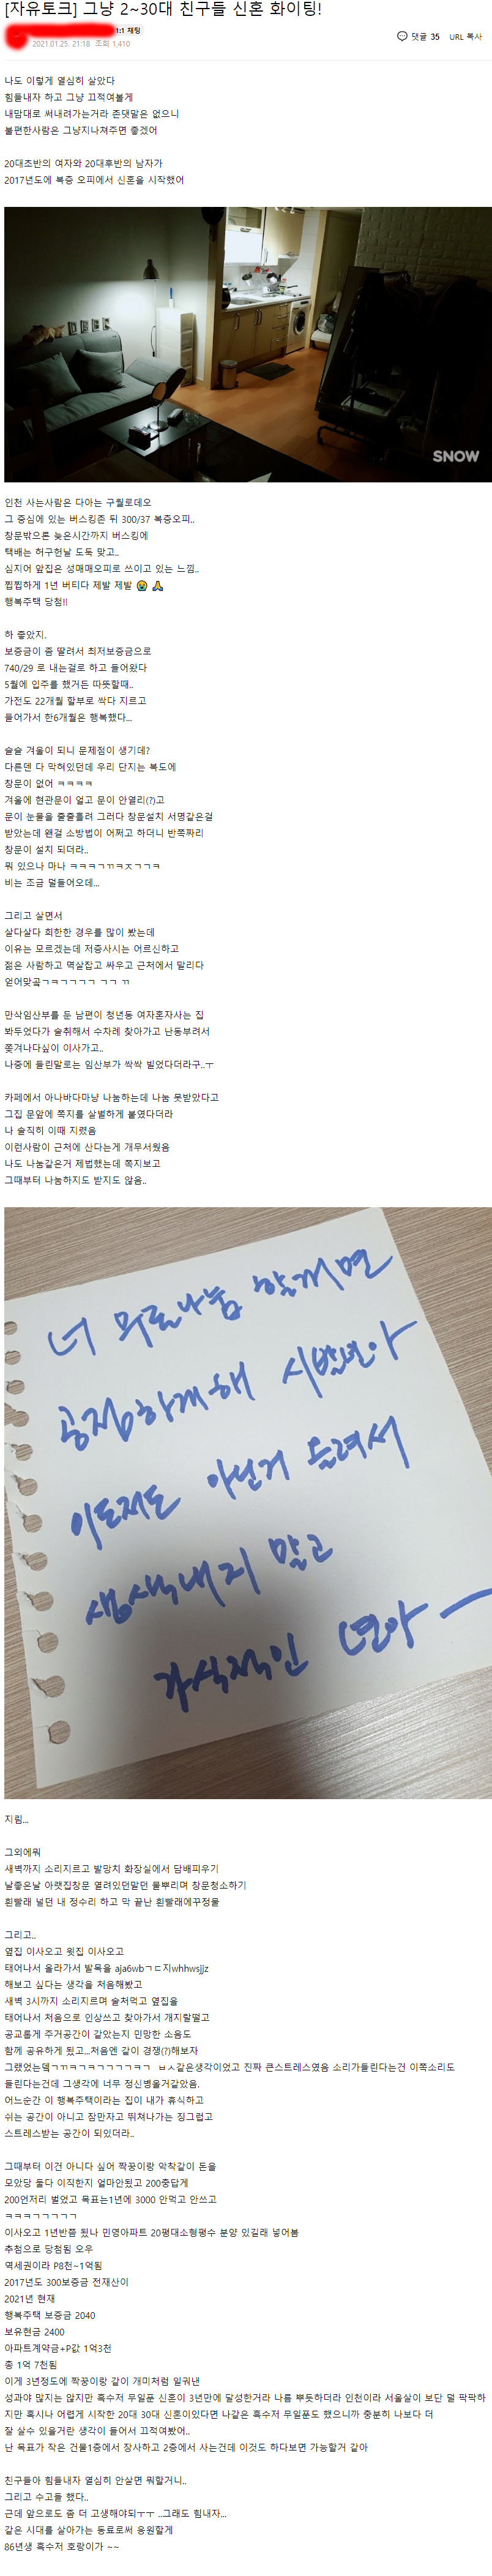 [자유토크] 그냥 2~30대 친구들 신혼 화이팅!
1:1 채팅
2021.01.25. 21:18 조회 1,410
댓글 35 URL 복사
나도 이렇게 열심히 살았다
힘들내자 하고 그냥 끄적여볼게
내맘대로 써내려가는거라 존댓말은 없으니
불편한사람은 그냥지나쳐주면 좋겠어
20대초반의 여자와 20대후반의 남자가
2017년도에 복층 오피에서 신혼을 시작했어
SNOW
인천 사는사람은 다아는 구월로데오
그 중심에 있는 버스킹존 뒤 300/37 복층오피..
창문밖으론 늦은시간까지 버스킹에
택배는 허구헌날 도둑 맞고..
심지어 앞집은 성매매오피로 쓰이고 있는 느낌..
찝찝하게 1년 버티다 제발 제발 😭 🙏
행복주택 당첨!!
하 좋았지.
보증금이 좀 딸려서 최저보증금으로
740/29 로 내는걸로 하고 들어왔다
5월에 입주를 했거든 따뜻할때..
가전도 22개월 할부로 싹다 지르고
들어가서 한6개월은 행복했다...
슬슬 겨울이 되니 문제점이 생기데?
다른덴 다 막혀있던데 우리 단지는 복도에
창문이 없어 ㅋㅋㅋㅋ
겨울에 현관문이 얼고 문이 안열리(?)고
문이 눈물을 줄줄흘려 그러다 창문설치 서명같은걸
받았는데 왠걸 소방법이 어쩌고 하더니 반쪽짜리
창문이 설치 되더라..
뭐 있으나 마나 ㅋㅋㅋㄱㄲㅋㅈㄱㄱㅋ
비는 조금 덜들어오데...
그리고 살면서
살다살다 희한한 경우를 많이 봤는데
이유는 모르겠는데 저층사시는 어르신하고
젊은 사람하고 멱살잡고 싸우고 근처에서 말리다
얻어맞곸ㄱㅋㄱㄱㄱㄱ ㄱㄱ ㄲ
만삭임산부를 둔 남편이 청년동 여자혼자사는 집
봐두었다가 술취해서 수차례 찾아가고 난동부려서
쫒겨나다싶이 이사가고..
나중에 들린말로는 임산부가 싹싹 빌었다더라구..ㅜ
카페에서 아나바다마냥 나눔하는데 나눔 못받았다고
그집 문앞에 쪽지를 살벌하게 붙였다더라
나 솔직히 이때 지렸음
이런사람이 근처에 산다는게 개무서웠음
나도 나눔같은거 제법했는데 쪽지보고
그때부터 나눔하지도 받지도 않음..
너 무료나눔 할꺼면
공정하게해 시발년아
이도저도 아닌거 들려서
생색내지 말고
가식적인 년아ㅡ
지림...
그외에뭐
새벽까지 소리지르고 발망치 화장실에서 담배피우기
날좋은날 아랫집창문 열려있던말던 물뿌리며 창문청소하기
흰빨래 널던 내 정수리 하고 막 끝난 흰빨래에꾸정물
그리고..
옆집 이사오고 윗집 이사오고
태어나서 올라가서 발목을 aja6wbㄱㄷ지whhwsjjz
해보고 싶다는 생각을 처음해봤고
새벽 3시까지 소리지르며 술처먹고 옆집을
태어나서 처음으로 인상쓰고 찾아가서 개지랄떨고
공교롭게 주거공간이 같았는지 민망한 소음도
함께 공유하게 됬고...처음엔 같이 경쟁(?)해보자
그랬었는뎈ㄱㄲㅋㄱㅋㄱㄱㄱㄱㅋㄱ ㅂㅅ같은생각이었고 진짜 큰스트레스였음 소리가들린다는건 이쪽소리도
들린다는건데 그생각에 너무 정신병올거같았음.
어느순간 이 행복주택이라는 집이 내가 휴식하고
쉬는 공간이 아니고 잠만자고 뛰쳐나가는 징그럽고
스트레스받는 공간이 되있더라..
그때부터 이건 아니다 싶어 짝꿍이랑 악착같이 돈을
모았당 둘다 이직한지 얼마안됬고 200중답게
200언저리 벌었고 목표는1년에 3000 안먹고 안쓰고
ㅋㅋㅋㄱㄱㄱㄱㄱ
이사오고 1년반쯤 됬나 민영아파트 20평대소형평수 분양 있길래 넣어봄
추첨으로 당첨됨 오우
역세권이라 P8천~1억됨
2017년도 300보증금 전재산이
2021년 현재
행복주택 보증금 2040
보유현금 2400
아파트계약금+P값 1억3천
총 1억 7천됨
이게 3년정도에 짝꿍이랑 같이 개미처럼 일궈낸
성과야 많지는 않지만 흑수저 무일푼 신혼이 3년만에 달성한거라 나름 뿌듯하더라 인천이라 서울살이 보단 덜 팍팍하
지만 혹시나 어렵게 시작한 20대 30대 신혼이있다면 나같은 흑수저 무일푼도 했으니까 충분히 나보다 더
잘 살수 있을거란 생각이 들어서 끄적여봤어..
난 목표가 작은 건물1층에서 장사하고 2층에서 사는건데 이것도 하다보면 가능할거 같아
친구들아 힘들내자 열심히 안살면 뭐할거니..
그리고 수고들 했다..
근데 앞으로도 좀 더 고생해야되ㅜㅜ ..그래도 힘내자...
같은 시대를 살아가는 동료로써 응원할게
86년생 흑수저 호랑이가 ~~